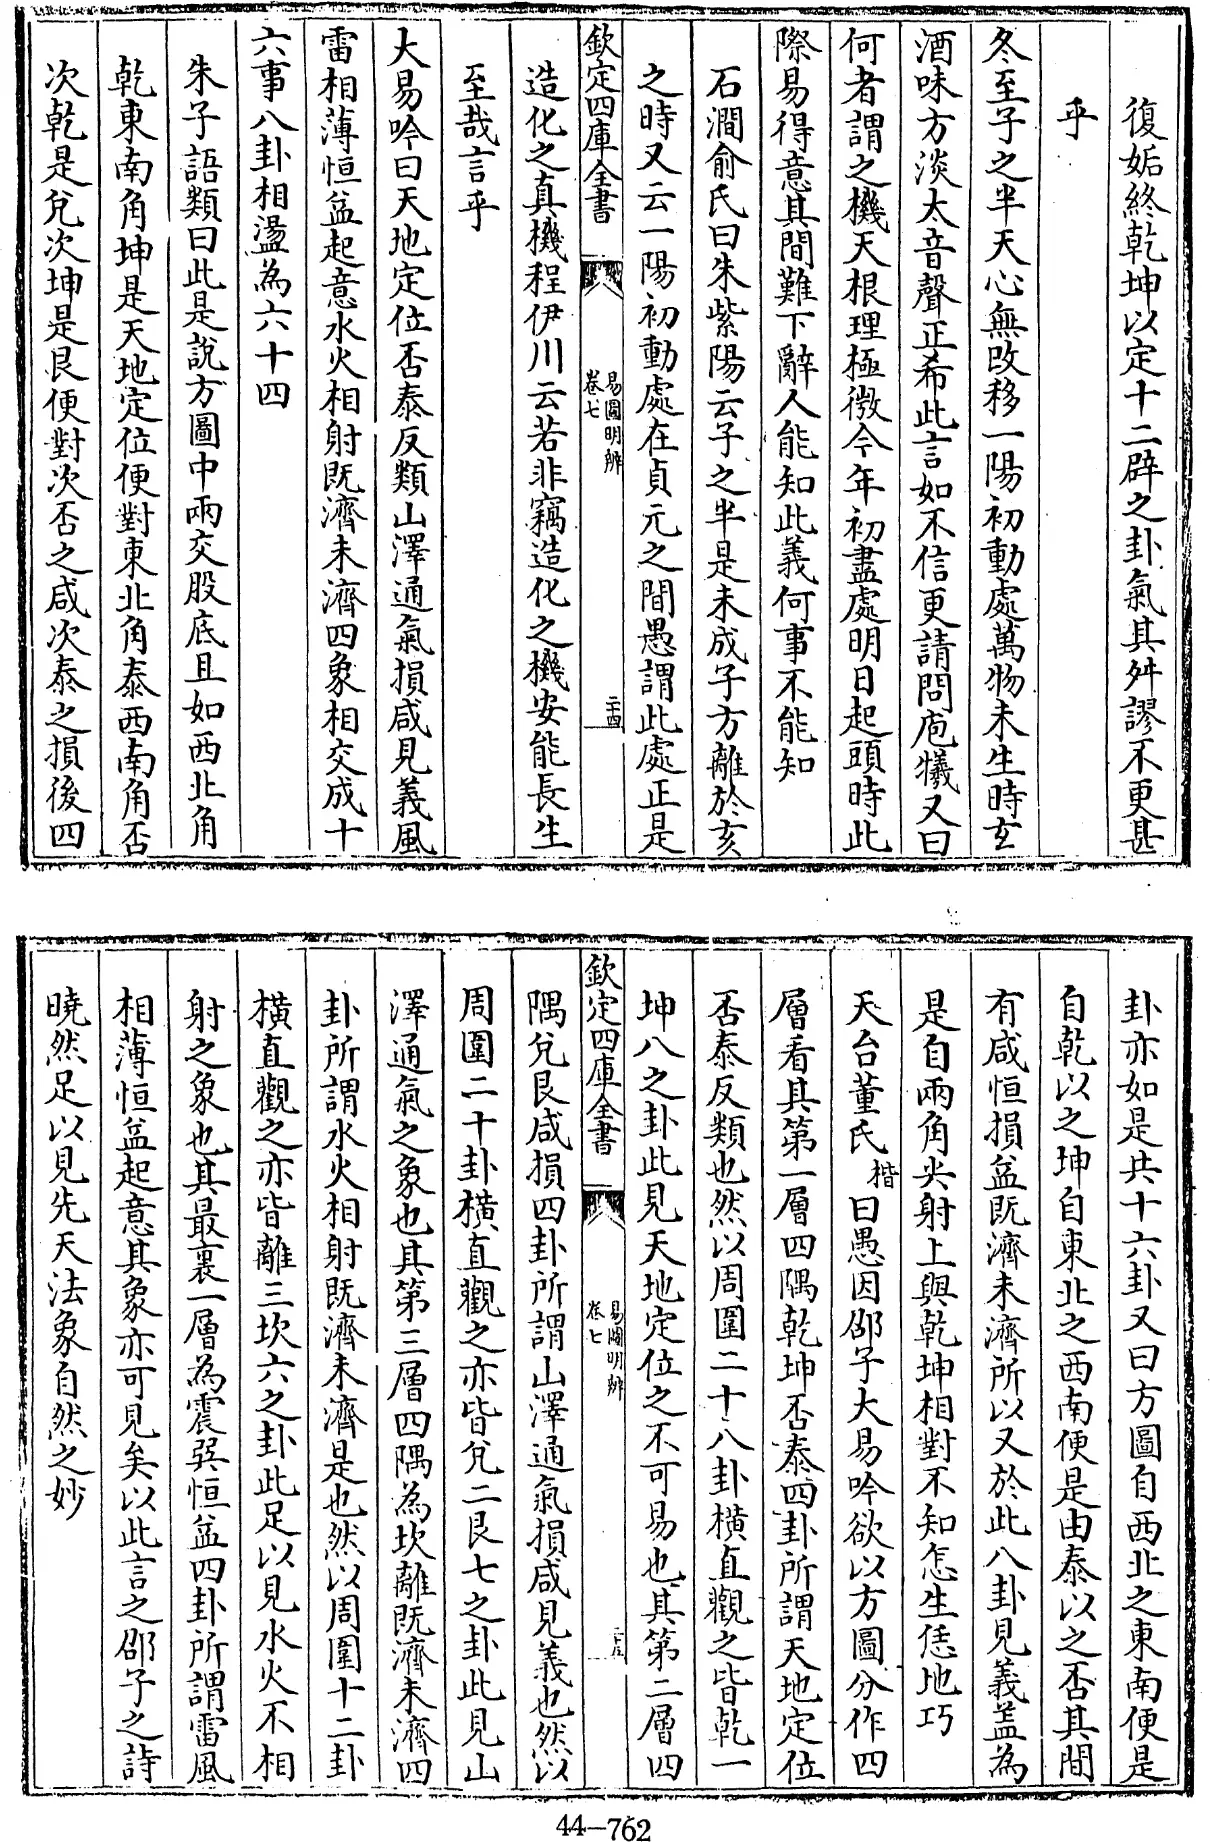 復姤終乾坤以定十二辟之卦氣其舛謬不更甚
乎
冬至子之半天心無改移一陽初動處萬物未生時玄
酒味方淡太音聲正希此言如不信更請問庖犧又曰
何者謂之機天根理極微今年初盡處明日起頭時此
際易得意其間難下辭人能知此義何事不能知
石澗俞氏曰朱紫陽云子之半是未成子方離於亥
之時又云一陽初動處在貞元之間愚謂此處正是
欽定四庫全書
易圖明辨
卷七
二十四
造化之真機程伊川云若非竊造化之機安能長生
至哉言乎
大易吟曰天地定位否泰反類山澤通氣損咸見義風
雷相薄恒益起意水火相射既濟未濟四象相交成十
六事八卦相盪為六十四
朱子語類曰此是說方圖中兩交股底且如西北角
乾東南角坤是天地定位便對東北角泰西南角否
次乾是兌次坤是艮便對次否之咸次泰之損後四
卦亦如是共十六卦又曰方圖自西北之東南便是
自乾以之坤自東北之西南便是由泰以之否其間
有咸恒損益既濟未濟所以又於此八卦見義蓋為
是自兩角尖射上與乾坤相對不知怎生恁地巧
天台董氏楷曰愚因邵子大易吟欲以方圖分作四
層看其第一層四隅乾坤否泰四卦所謂天地定位
否泰反類也然以周圍二十八卦橫直觀之皆乾一
坤八之卦此見天地定位之不可易也其第二層四
欽定四庫全書
易圖明辨
卷七
二十五
隅兌艮咸損四卦所謂山澤通氣損咸見義也然以
周圍二十卦橫直觀之亦皆兌二艮七之卦此見山
澤通氣之象也其第三層四隅為坎離既濟未濟四
卦所謂水火相射既濟未濟是也然以周圍十二卦
橫直觀之亦皆離三坎六之卦此足以見水火不相
射之象也其最裏一層為震巽恒益四卦所謂雷風
相薄恒益起意其象亦可見矣以此言之邵子之詩
曉然足以見先天法象自然之妙
44-762